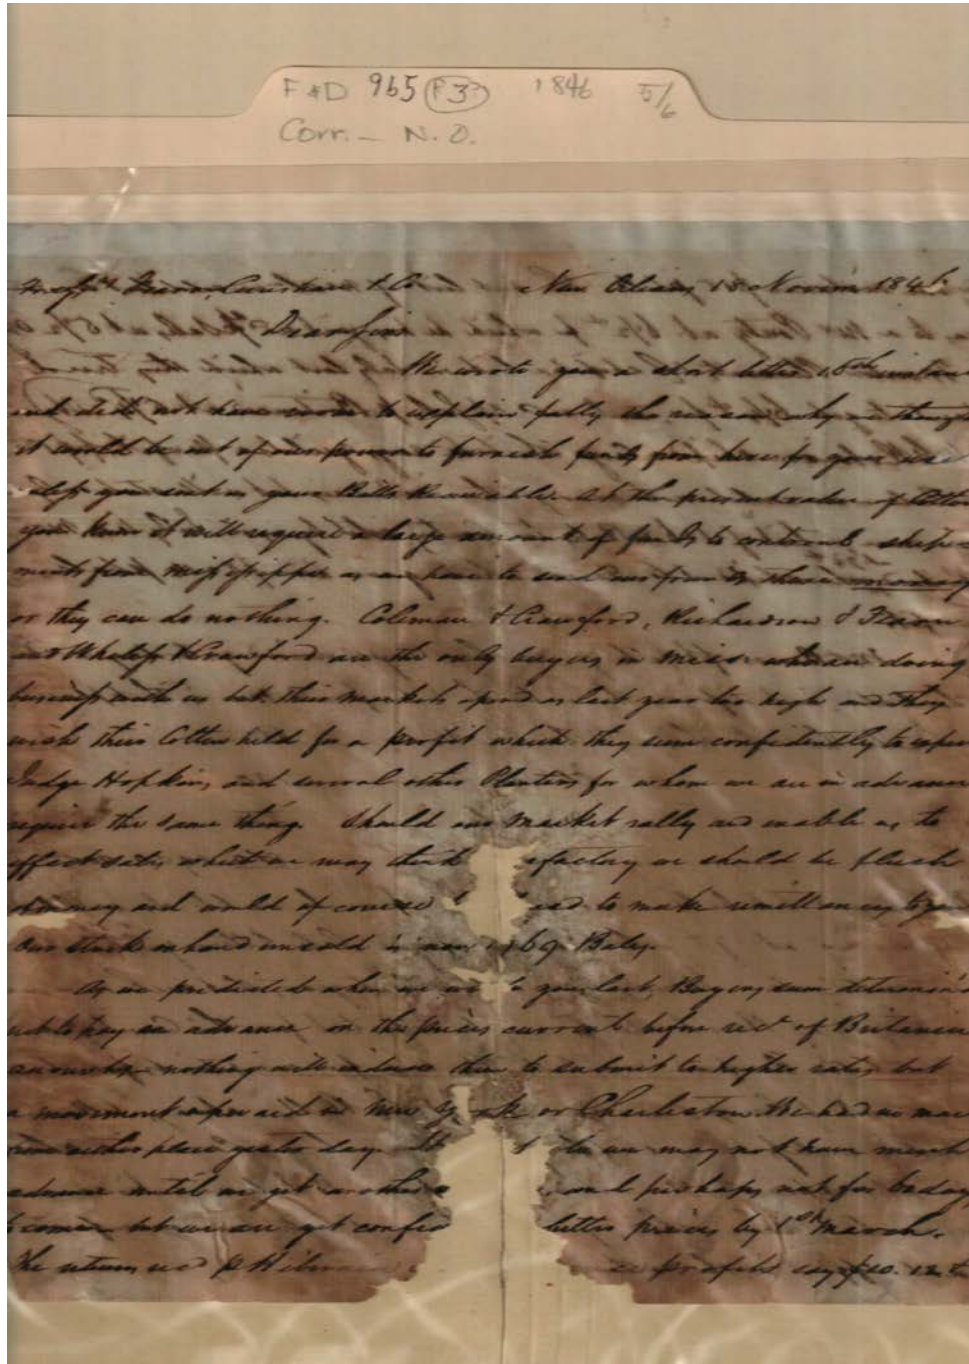 F&D 965 F3 1846 5/6
Corr. - N.O.
Fearn, & Co New Orleans 18 Novem 1846
Dear Sirs
We wrote you a short letter 16th instan
and did not have room to explain fully the reason why we though
it would be out of our power to furnish funds from here for your use
unless you sent us your Bills Receivable. At the present value of Cotton
you know it will require a large amount of funds to controul ship
ments from Mississippi as we have to send
or they can do nothing. Coleman & Crawford, Richardson & Fearn
and & Crawford are the only buyers in Miss. who are doing
business with us but this market opened as last year too high and they
wish their Cotton held for a profit which they seem confidently to expec
Judge Hopkins, and several other Planters for whom we are in advance
require the same thing. Should our market rally and enable us to
effect sales what we may think sfactory we should be flush
of money and would of course sed to make remittances to you
Our stock on hand unsold is now 1869 Bales.
As we predicted when we we to you last, Buyers seem determin'd
not to pay an advance on the prices current before rect of Britannia
nothing will induce them to submit to higher rates but
a movement in New York or Charleston. We had no mail
from either place yesterday. we may not have much
advance until we get another and perhaps not for
to come but we are yet confid better prices by 1st March.
The return rec'd p profits say $10.